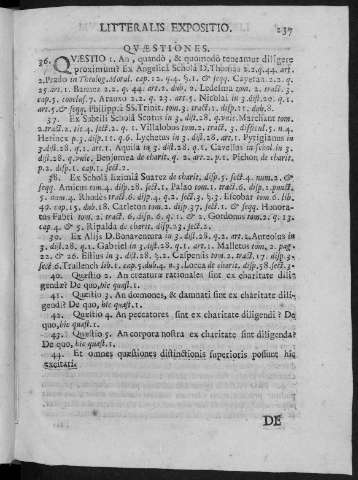 LITTERALIS EXPOSITIO. 237
QVÆSTIONES.
36. QVÆSTIO 1. An, quandò, & quomodò teneamur diligere
proximum? Ex Angelicâ Scholâ D. Thomas 2.2.q.44. art.
2. Prado in Theolog. Moral. cap. 12. q.4. §.1. & seqq. Cayetan. 2.2. q.
25. art. 1. Bannez 2.2. q. 44. art. 2. dub. 2. Ledesma tom. 2. tract. 3.
cap. 5. conclus. 7. Arauxo 2.2. q. 23. art. 5. Nicolai in 3. dist. 20. q. 1.
art. 5. & seqq. Philippus SS. Trinit. tom. 3. tract. 2. disp. 21. dub. 8.
37. Ex Subtili Scholâ Scotus in 3. dist. 28. q. unic. Marchant tom.
2. tract. 2. tit. 4. sect. 2. q. 1. Villalobos tom. 2. tract. 3. difficul. 5. n. 4.
Herincx p. 3. disp. 11. q. 6. Lychetus in 3. dist. 28. art. 1. Pytigianus in
3. dist. 28. q. 1. art. 1. Aquila in 3. dist. 28. q. 1. Cavellus in schol. in 3.
dist. 28. q. unic. Benjumea de charit. q. 2. art. 2. p. 1. Pichon de charit.
p. 2. disp. 1. cap. 1. sect. 2.
38. Ex Scholâ Eximiâ Suarez de charit. disp. 5. sect. 4. num. 2. &
seqq. Amicus tom. 4. disp. 28. sect. 1. Palao tom. 1. tract. 6. disp. 2. punct.
5. num. 4. Rhodes tract. 6. disp. 4. q. 2. sect. 3. §. 3. Escobar tom. 6. lib.
49. cap. 15. dub. 18. Carleton tom. 2. disp. 37. sect. 1. & seqq. Honora-
tus Fabri tom. 2. tract. 6. disp. 6. q. 1. & 2. Gordonus tom. 2. q. 13.
cap. 4. & 5. Ripalda de charit. disp. 23. sect. 2.
39. Ex Alijs D. Bonaventura in 3. dist. 28. q. 2. art. 2. Aureolus in
3. dist. 28. q. 1. Gabriel in 3. dist. 28. q. 1. art. 1. Malletus tom. 2. pag.
22. & 26. Estius in 3. dist. 28. §. 2. Caspensis tom. 2. tract. 17. disp. 3.
sect. 6. Trullench lib. 1. cap. 5. dub. 4. p. 3. Locca de charit. disp. 58. sect. 3.
40. Quæstio 2. An creatura rationales sint ex charitate dili-
genda? De quo, hic quæst. 1.
41. Quæstio 3. An dæmones, & damnati sint ex charitate dili-
gendi? De quo, hic quæst. 1.
42. Quæstio 4. An peccatores sint ex charitate diligendi? De
quo, hic quæst. 1.
43. Quæstio 5. An corpora nostra ex charitate sint diligenda?
De quo, hic quæst. 1.
44. Et omnes quæstiones distinctionis superioris possunt hic
excitari.
DE